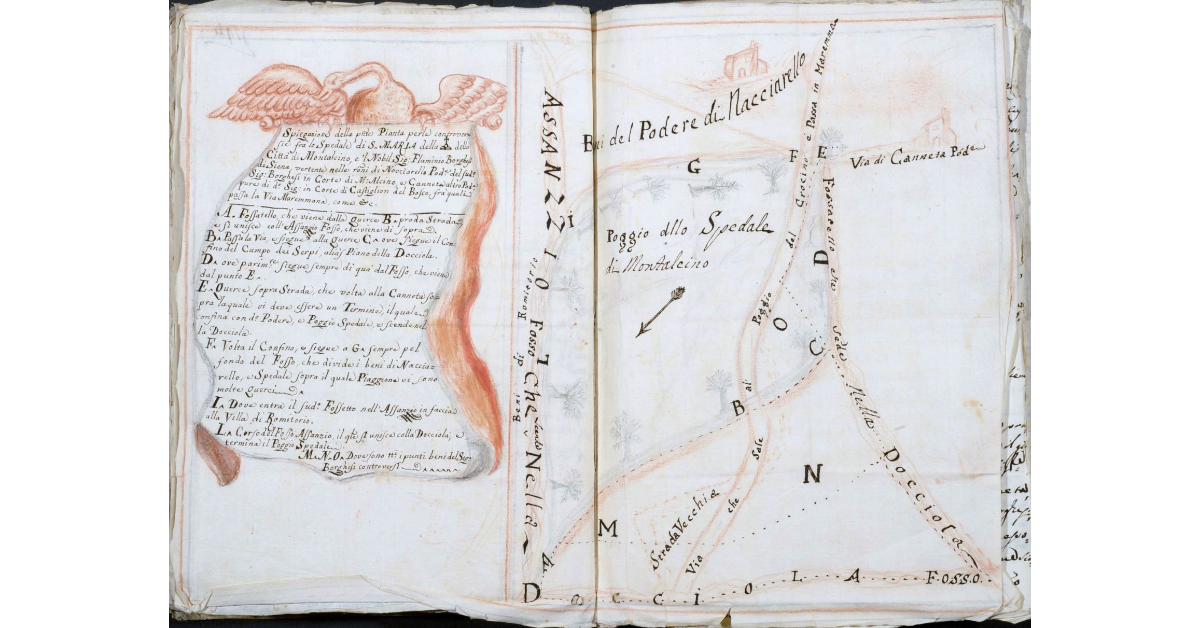 Spiegazione della pñte Pianta per le controver=
sie frà lo Spedale di S. MARIA della della
Città di Montalcino, e 'l Nobil Sig: Flaminio Borghesi
da Siena, vertente nelle Nacciarella Pod: del sudº
Sig: Borghesi in Corte di M:Alcino, e Canneta altro Pod:
pure di dº Sig: in Corte di Castiglion del Bosco, frà quali
passa la Via Maremmana, come &c.
A. Fossatello, che viene dalla querce B. proda Strada
e si unisce coll' Assanzio Fosso, che viene di sopra
B. Passa la Via, e siegue alla querce C. ove siegue il Con=
fino del Campo dei Serpi, aliàs Piano della Docciola.
D. ove parim.te siegue sempre di quà dal Fosso, che viene
dal punto E.
E. Querce sopra Strada, che volta alla Canneta so=
pra la quale vi deve essere un Termine, il quale
confina con dº Podere, e Poggio Spedale, e scende nel
la Docciola
F. Volta il Confino, e siegue a G. sempre pel
fondo del Fosso, che divide i beni di Naccia=
rello, e Spedale sopra il quale Piaggione vi sono
molte querci
I. Dove entra il sudº Fossetto nell' Assanzio in faccia
alla Villa di Romitorio.
L. Corso del Fosso Assanzio, il qle si unisce colla Docciola, e
termina il Poggio Spedale
M. N. O. Dove sono tti i punti beni del Sig:
Borghesi controversi
ASSANZZIO Fosso che Scende Nella
Beni di Romitorio
Beni del Podere di Nacciarello
I
G
F
E
Via di Canneta Pode
Poggio dllo Spedale
di Montalcino
Via che Sale al Poggio del Crocino e Passa in Maremma
Fossatello che Sede Nella Docciola
D
O
C
B
N
M
L
A
Strada Vecchia
Docciola FOSSO